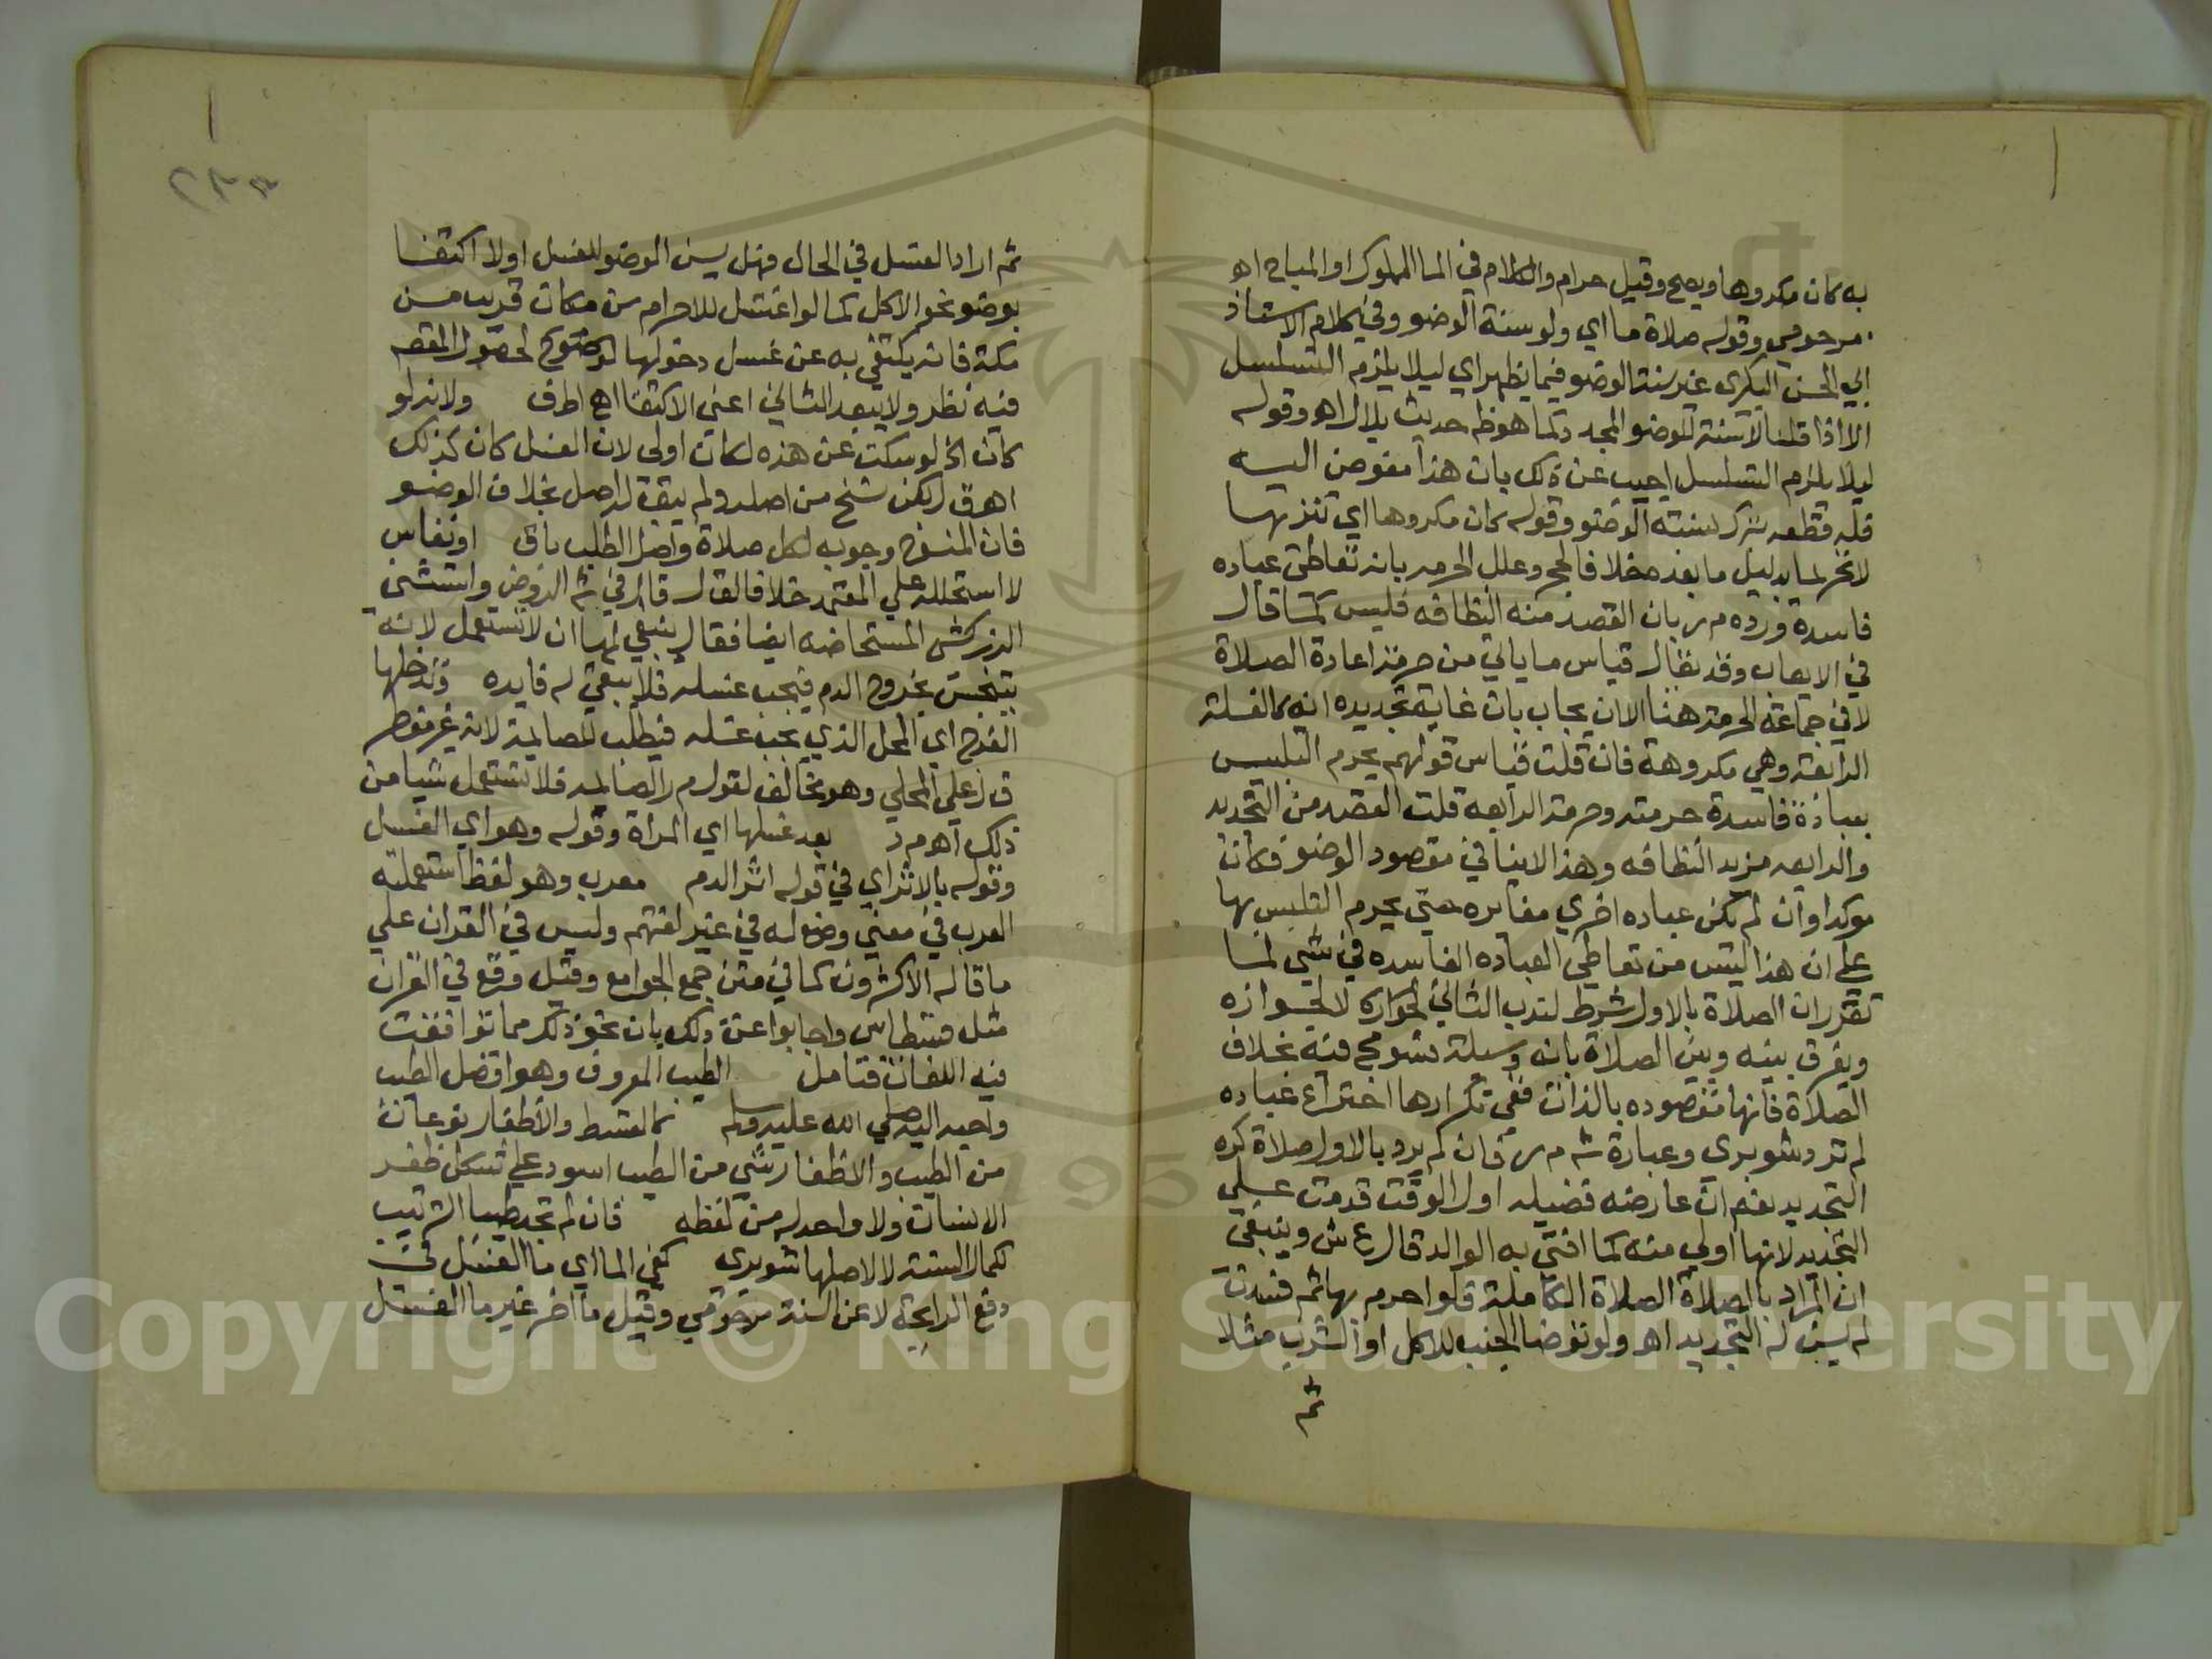 به كان مكروها ويصح وقيل حرام والكلام في الما المملوك او المباح اهـ
مرحومي وقوله صلاة ما اي ولو سنة الوضو وفي كلام الاستاذ
ابي الحسن البكري غير سنة الوضو فيما يظهر اي ليلا يلزم التسلسل
الا اذا قلنا لا سنة للوضو المجدد كما هو ظ حديث بلال اهـ وقوله
ليلا يلزم التسلسل اجيب عن ذلك بان هذا مفوض اليه
فله قطعه بترك سنته الوضو وقوله كان مكروها اي تنزيها
لا تحريما بدليل ما بعده خلافا لحج وعلل الحرمه بانه تعاطى عباده
فاسدة ورده م ر بان القصد منه النظافه فليس كما قال
في الايعاب وقد يقال قياس ما ياتي من حرمة اعادة الصلاة
لا في جماعة الحرمة هنا الا ان يجاب بان غاية تجديده انه كالغسلة
الرابعة وهي مكروهة فان قلت قياس قولهم يحرم التلبيس
بعبادة فاسدة حرمته وحرمة الرابعه قلت القصد من التجديد
والرابعه مزيد النظافه وهذا لا ينافي مقصود الوضو فكان
موكدا وان لم يكن عباده اخري مغايره حتى يحرم التلبيس بها
علي ان هذا ليس من تعاطي العباده الفاسده في شي لما
تقرر ان الصلاة بالاول شرط لندب الثاني لجوازه لا لجوازه
ويفرق بينه وبين الصلاة بانه وسيلة فسومح فيه بخلاف
الصلاة فانها مقصوده بالذات ففي تكرارها اختراع عباده
لم ترد شوبري وعبارة شـ م ر فان لم يرد بالاول صلاة كره
التجديد نعم ان عارضه فضيله اول الوقت قدمت علي
التجديد لانها اولي منه كما افتى به الوالد قال ع ش وينبغي
ان المراد بالصلاة الصلاة الكاملة فلو احرم بها ثم فسدت
لم يسن له التجديد اهـ ولو توضا الجنب للاكل او الشرب مثلا
ثم
ثم اراد الغسل في الحال فهل يسن الوضو للغسل او لا اكتفا
بوضو نحو الاكل كما لو اغتسل للاحرام من مكان قريب من
مكة فانه يكتفي به عن غسل دخولها لحصول المقصد
فيه نظر ولا يبعد الثاني اعني الاكتفا اهـ اطف ولانه لو
كان الخ لو سكت عن هذه لكان اولى لان الغسل كان كذلك
اهـ ق ل لكن نسخ من اصله ولم يبق له اصل بخلاف الوضو
فان المنسوخ وجوبه لكل صلاة واصل الطلب باق او نفاس
لا استحاضة علي المعتمد خلافا لق ل قال في شـ الروض واستثنى
الزركشي المستحاضه ايضا فقال ينبغي لها ان لا تستعمل لانه
يتنجس بخروج الدم فيجب غسله فلا يبقي له فايده وتدخلها
الفرج اي المحل الذي يجب غسله فيطلب للصايمة لانه غير مفطر
ق ل علي المحلي وهو مخالف لقول م ر الصايمه فلا تستعمل شيا من
ذلك اهـ م د بعد غسلها اي المراة وقوله وهو اي الغسل
وقوله بالاثر اي في قوله اثر الدم معرب وهو لفظ استعملته
العرب في معني وضع له في غير لغتهم وليس في القران علي
ما قاله الاكثرون كما في متن جمع الجوامع وقيل وقع في القران
مثل قسطاس واجابوا عن ذلك بان نحو ذلك مما توافقت
فيه اللغات فتامل الطيب المعروف وهو افضل الطيب
واحبه اليه صلي الله عليه وسلم كالقسط والاظفار نوعان
من الطيب والاظفار شي من الطيب اسود علي شكل ظفر
الانسان ولا واحد له من لفظه فان لم تجد طيبا الترتيب
لكمال السنة لا لاصلها شوبري كفي الما اي ما الغسل في
دفع الرايحة لا عن السنة مرحومي وقيل ما اخر غير ما الغسل
Copyright © King Saud University